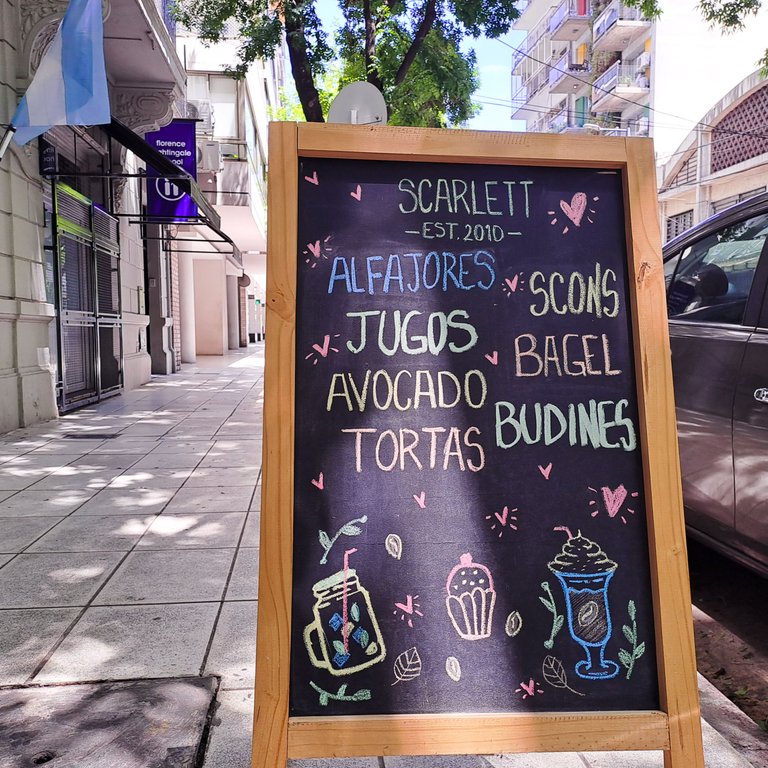 florence
nightingale
school
SCARLETT
- EST. 2010 -
ALFAJORES
JUGOS
AVOCADO
TORTAS
SCONS
BAGEL
BUDINES